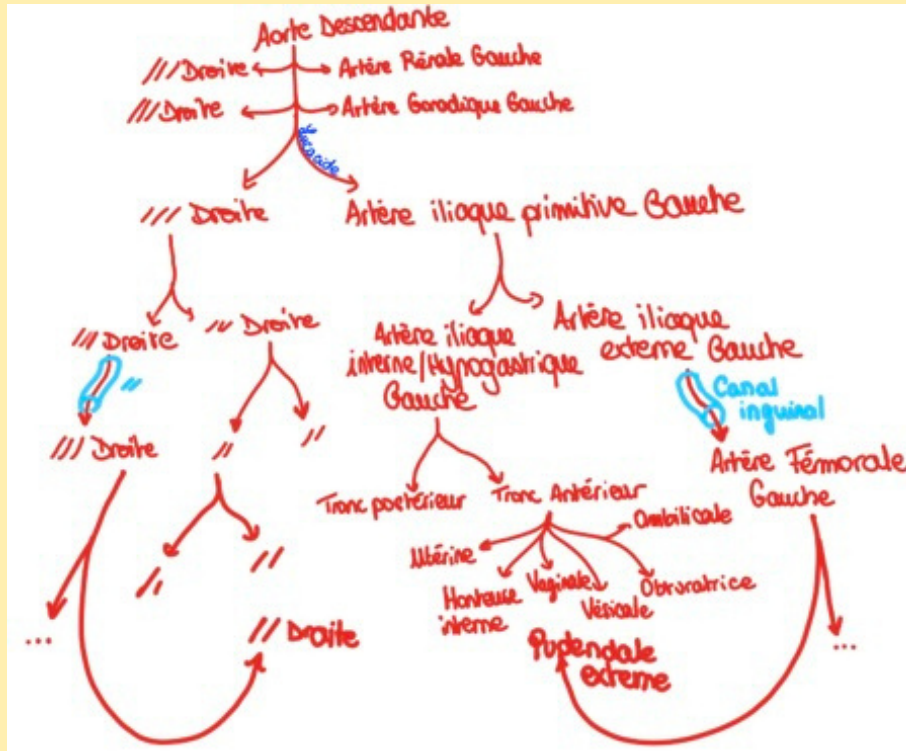 Aorte Descendante
/// Droite
Artère Rénale Gauche
/// Droite
Artère Gonadique Gauche
/// Droite
Artère iliaque primitive Gauche
/// Droite
// Droite
Artère iliaque
interne/Hypogastrique
Gauche
Artère iliaque
externe Gauche
//
Canal
inguinal
/// Droite
//
//
Artère Fémorale
Gauche
Tronc postérieur
Tronc Antérieur
Ombilicale
Utérine
Honteuse
interne
Vaginale
Vésicale
Obturatrice
//
//
...
// Droite
Pudendale
externe
...